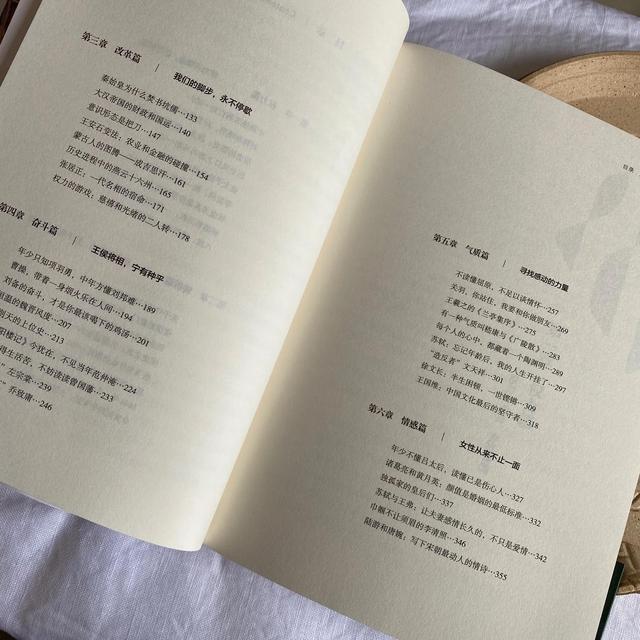 第三章 改革篇 | 我们的脚步，永不停歇
秦始皇为什么焚书坑儒···133
大汉帝国的财政和国运···140
意识形态是把刀···147
王安石变法：农业和金融的碰撞···154
蒙古人的图腾——成吉思汗···161
历史进程中的燕云十六州···165
张居正：一代名相的宿命···171
权力的游戏：慈禧和光绪的二人转···178
第四章 奋斗篇 | 王侯将相，宁有种乎
年少只知项羽勇，中年方懂刘邦难···189
曹操，带着一身烟火乐在人间···194
刘备的奋斗，才是你最该喝下的鸡汤···201
桓温的魏晋风度···207
则天的上位史···213
阳楼记》今犹在，不见当年范仲淹···224
得生活苦，不妨读读曾国藩···233
”左宗棠···239
”乔致庸···246
目录
第五章 气质篇 | 寻找感动的力量
不读懂屈原，不足以读情怀···257
关羽，你站住，我要和你做朋友···269
王羲之的《兰亭集序》···275
有一种气质叫嵇康与《广陵散》···283
每个人的心中，都藏着一个陶渊明···289
苏轼：忘记年龄后，我的人生开挂了···297
“造反者”文天祥···301
徐文长：半生困顿，一世铿锵···309
王国维：中国文化最后的坚守者···318
第六章 情感篇 | 女性从来不止一面
年少不懂吕太后，读懂已是伤心人···327
诸葛亮和黄月英：颜值是婚姻的最低标准···332
独孤家的皇后们···337
苏轼与王弗：让夫妻感情长久的，不只是爱情···342
巾帼不让须眉的李清照···346
陆游和唐婉：写下宋朝最动人的情诗···355